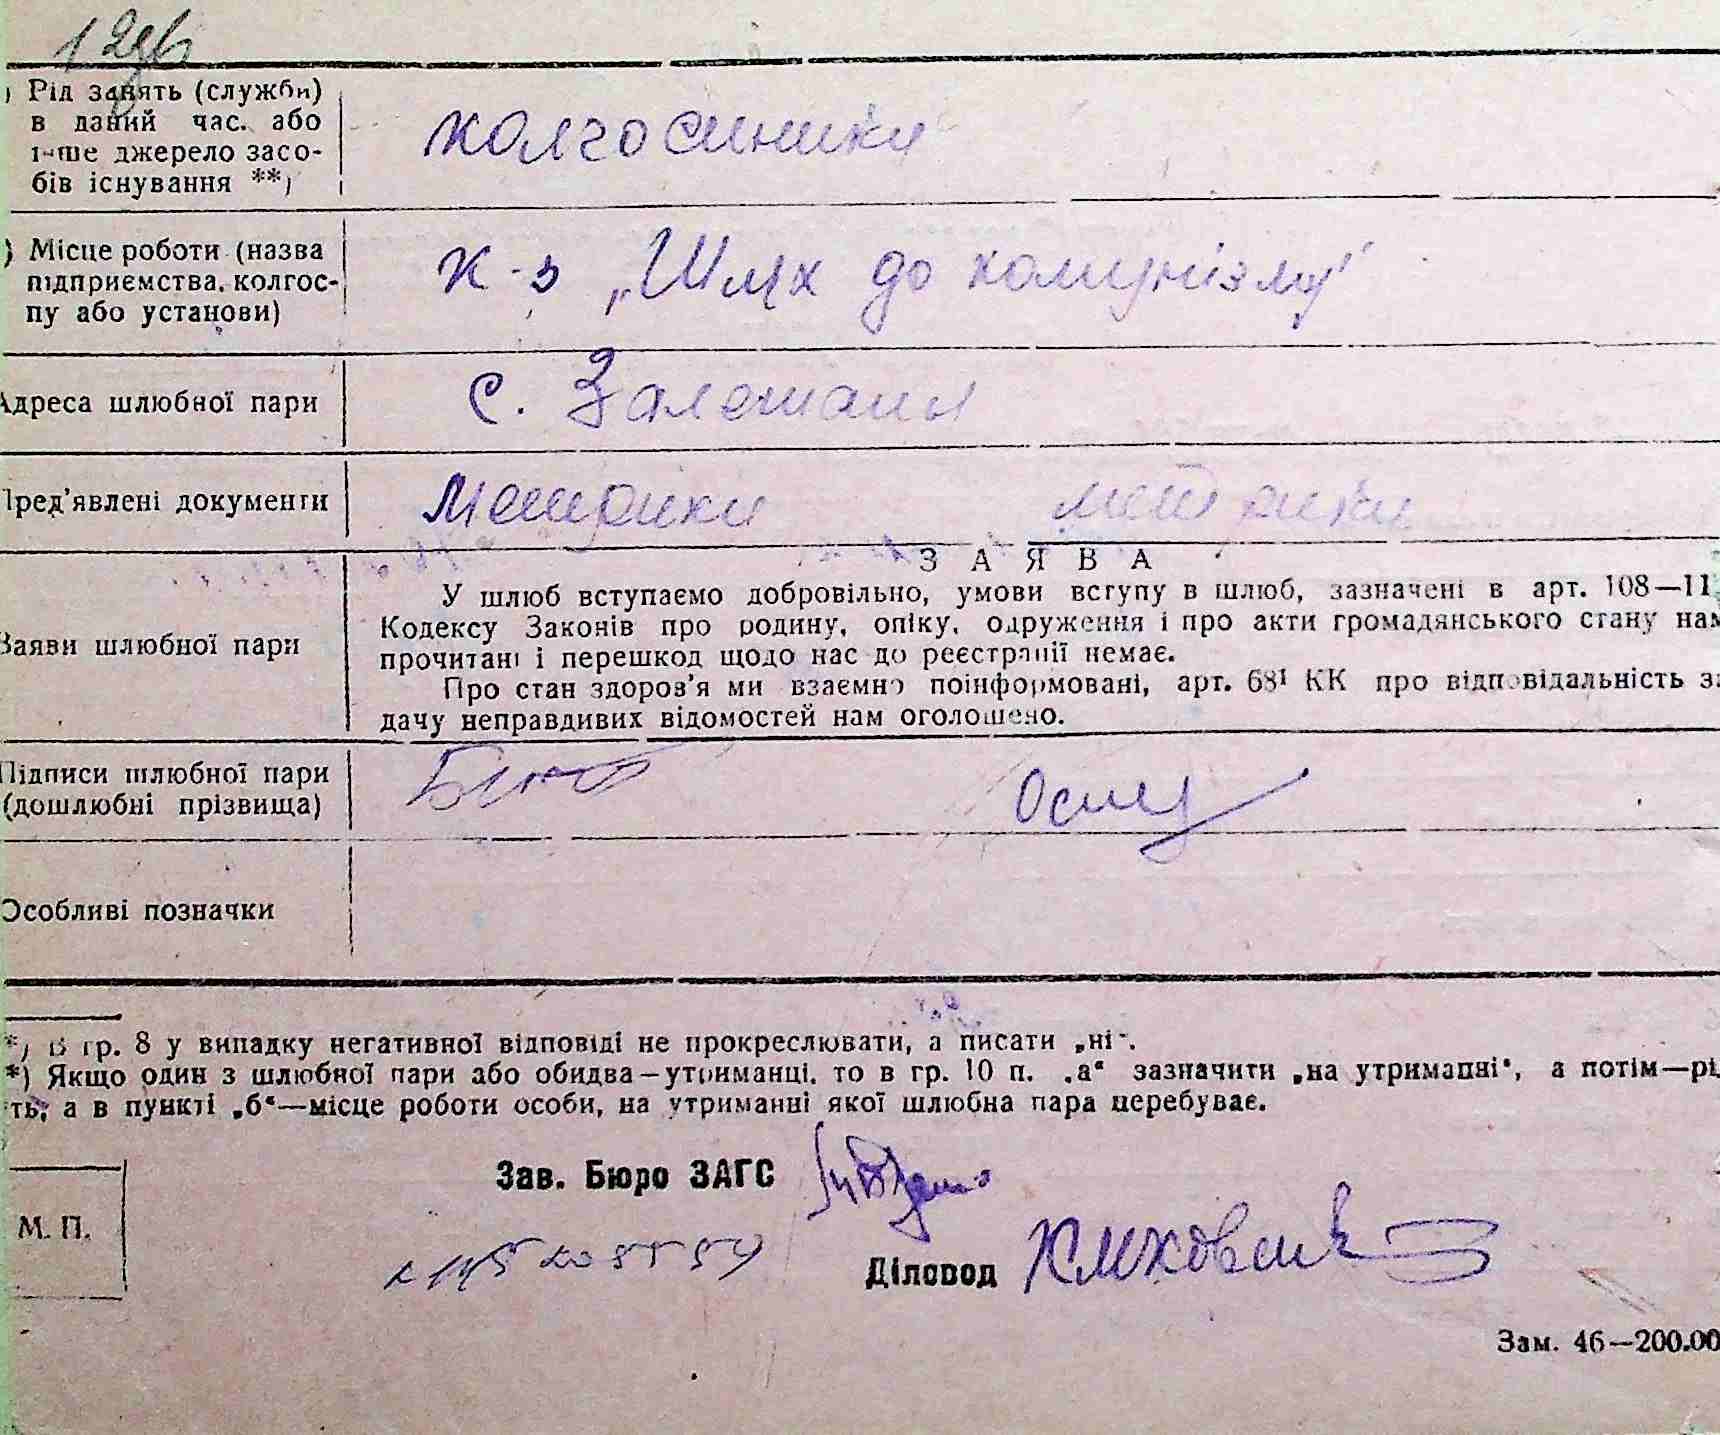 ) Рід занять (служби) в даний час, або інше джерело засобів існування **)
колгоспники
) Місце роботи (назва підприємства, колгоспу або установи)
к-з „Шлях до комунізму"
Адреса шлюбної пари
с. Залешани
Пред'явлені документи
Метрики метрики
ЗАЯВА
Заяви шлюбної пари
У шлюб вступаємо добровільно, умови вступу в шлюб, зазначені в арт. 108—11
Кодексу Законів про родину, опіку, одруження і про акти громадянського стану нам
прочитані і перешкод щодо нас до реєстрації немає.
Про стан здоров'я ми взаємно поінформовані, арт. 68¹ КК про відповідальність за
дачу неправдивих відомостей нам оголошено.
Підписи шлюбної пари (дошлюбні прізвища)
Особливі позначки
*) В гр. 8 у випадку негативної відповіді не прокреслювати, а писати „ні".
*) Якщо один з шлюбної пари або обидва—утриманці, то в гр. 10 п. „а" зазначити „на утриманні", а потім—рі
ть, а в пункті „б"—місце роботи особи, на утриманні якої шлюбна пара перебуває.
Зав. Бюро ЗАГС
М. П.
Діловод
Зам. 46—200.00